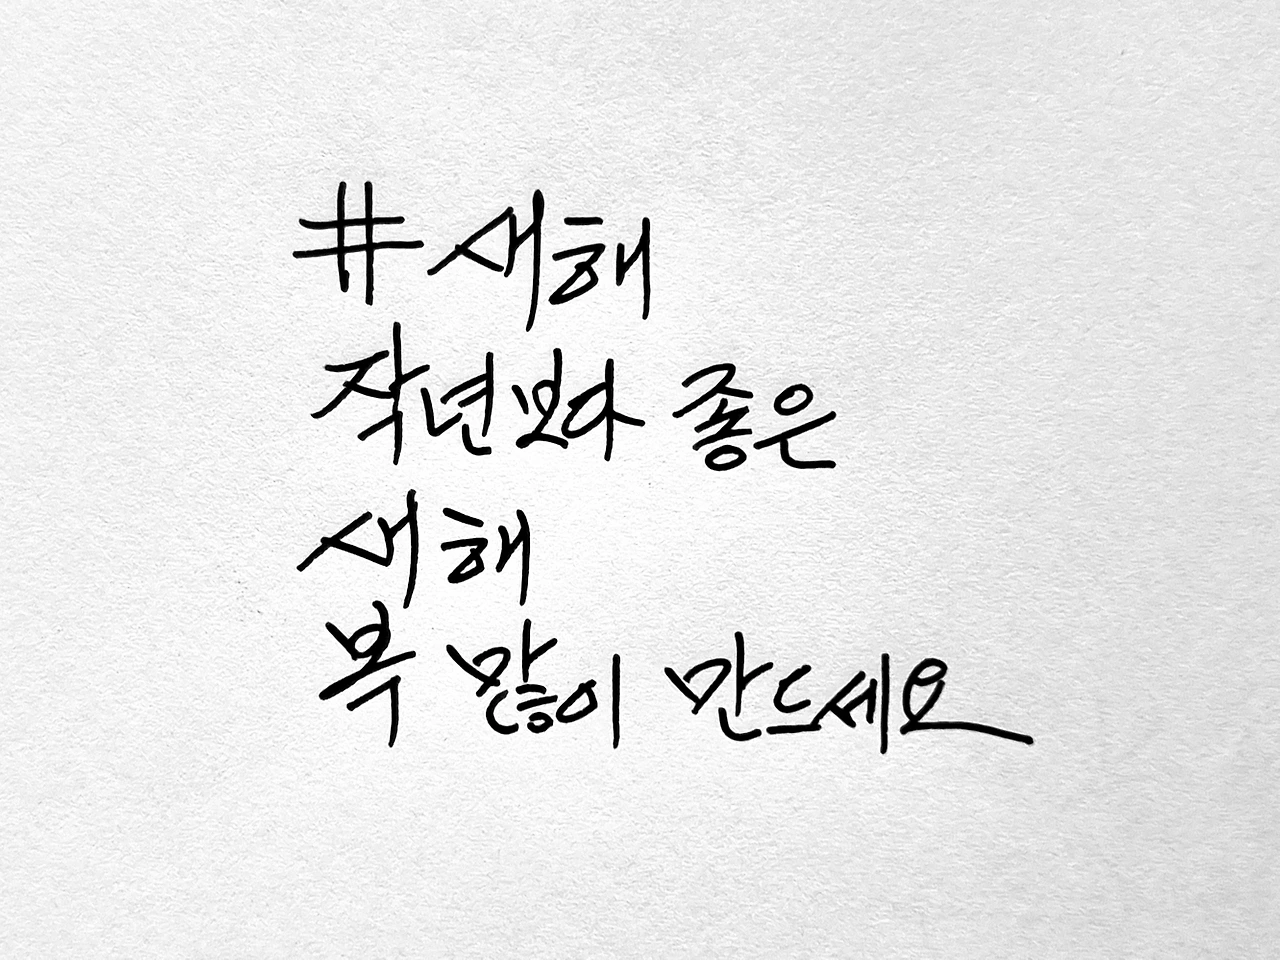 #새해
작년보다 좋은
새해
복 많이 만드세요